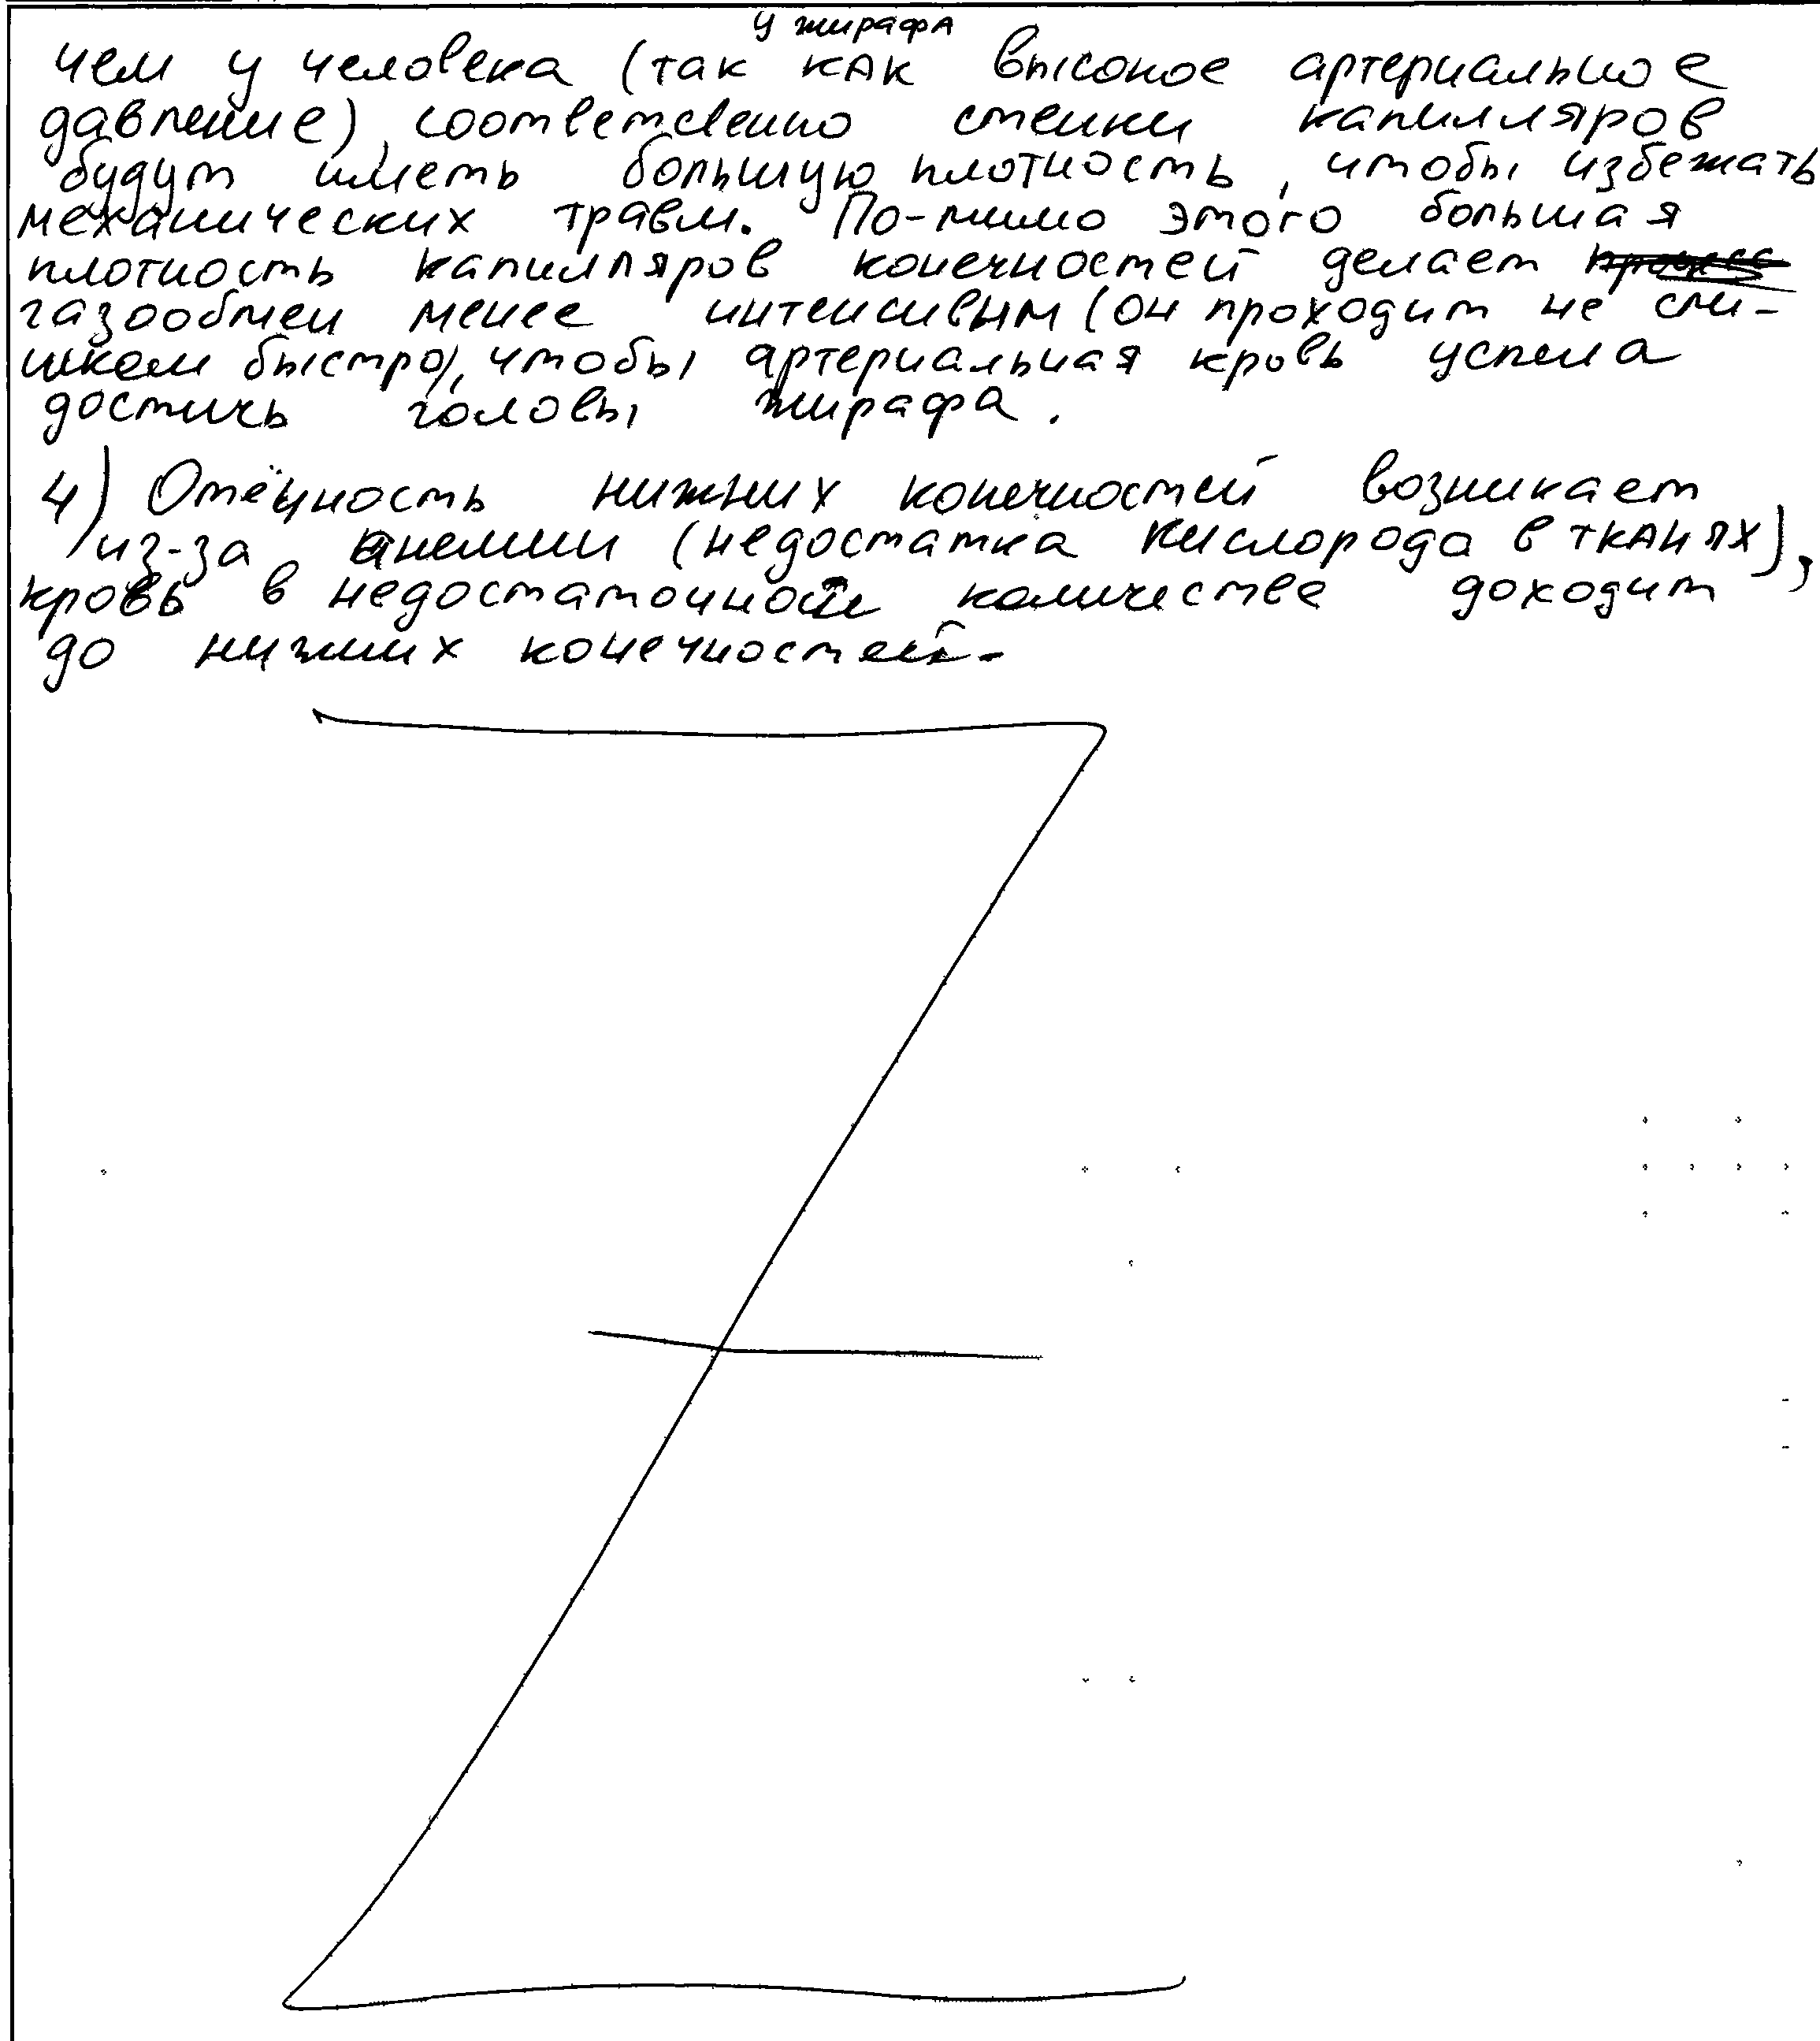 у жирафа
чем у человека (так как высокое артериальное
давление), соответственно стенки капилляров
будут иметь большую плотность, чтобы избежать
механических травм. По-мимо этого большая
плотность капилляров конечностей делает процесс
газообмен менее интенсивным (он проходит не сли-
шком быстро), чтобы артериальная кровь успела
достичь головы жирафа.
4) Отёчность нижних конечностей возникает
из-за анемии (недостатка кислорода в тканях),
кровь в недостаточном количестве доходит
до нижних конечностей.